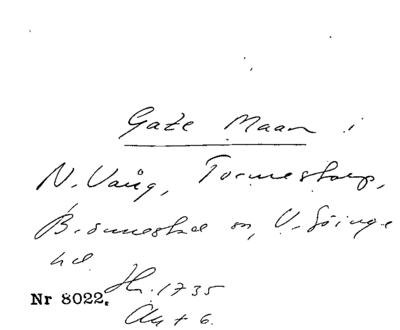 Gate Maan i
N. Vång, Tormestorp,
Brönnestad sn, V. Göinge
hd.
Hn. 1735
Nr 8022.
Ak + 6.